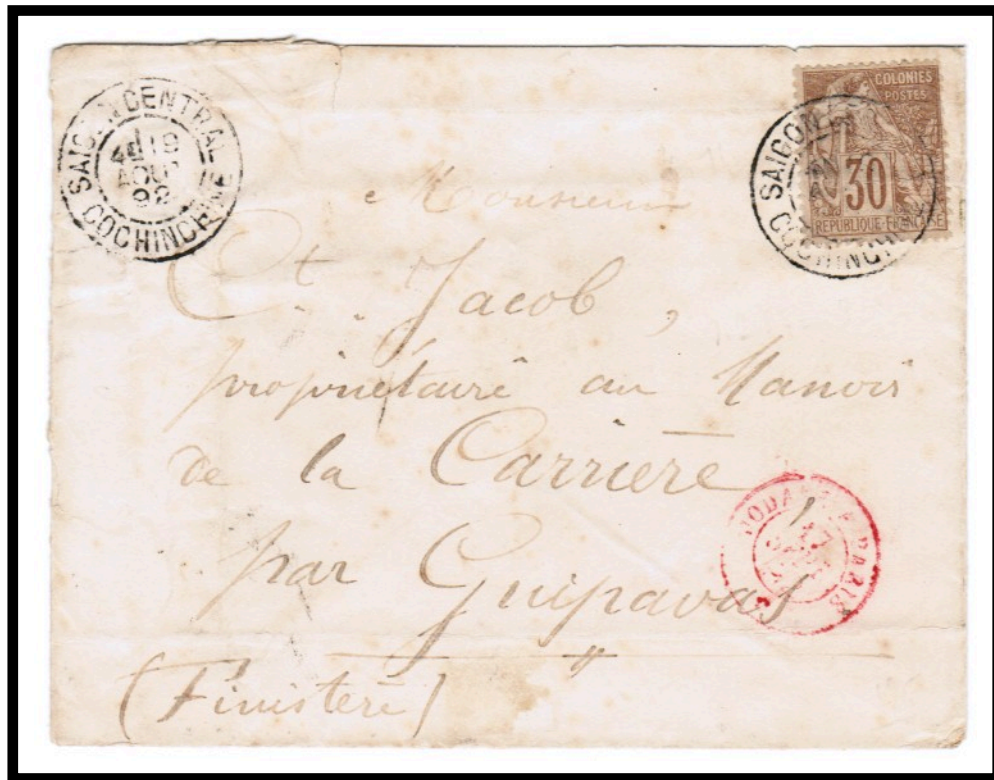 SAIGON CENTRAL
19
AOUT
92
COCHINCHINE
COLONIES
POSTES
30
REPUBLIQUE FRANCAISE
SAIGON
COCHINCH
Monsieur
Ct. Jacob,
propriétaire au Manoir
de la Carrière,
par Guipavas
(Finistère)
MODANE A PARIS
17